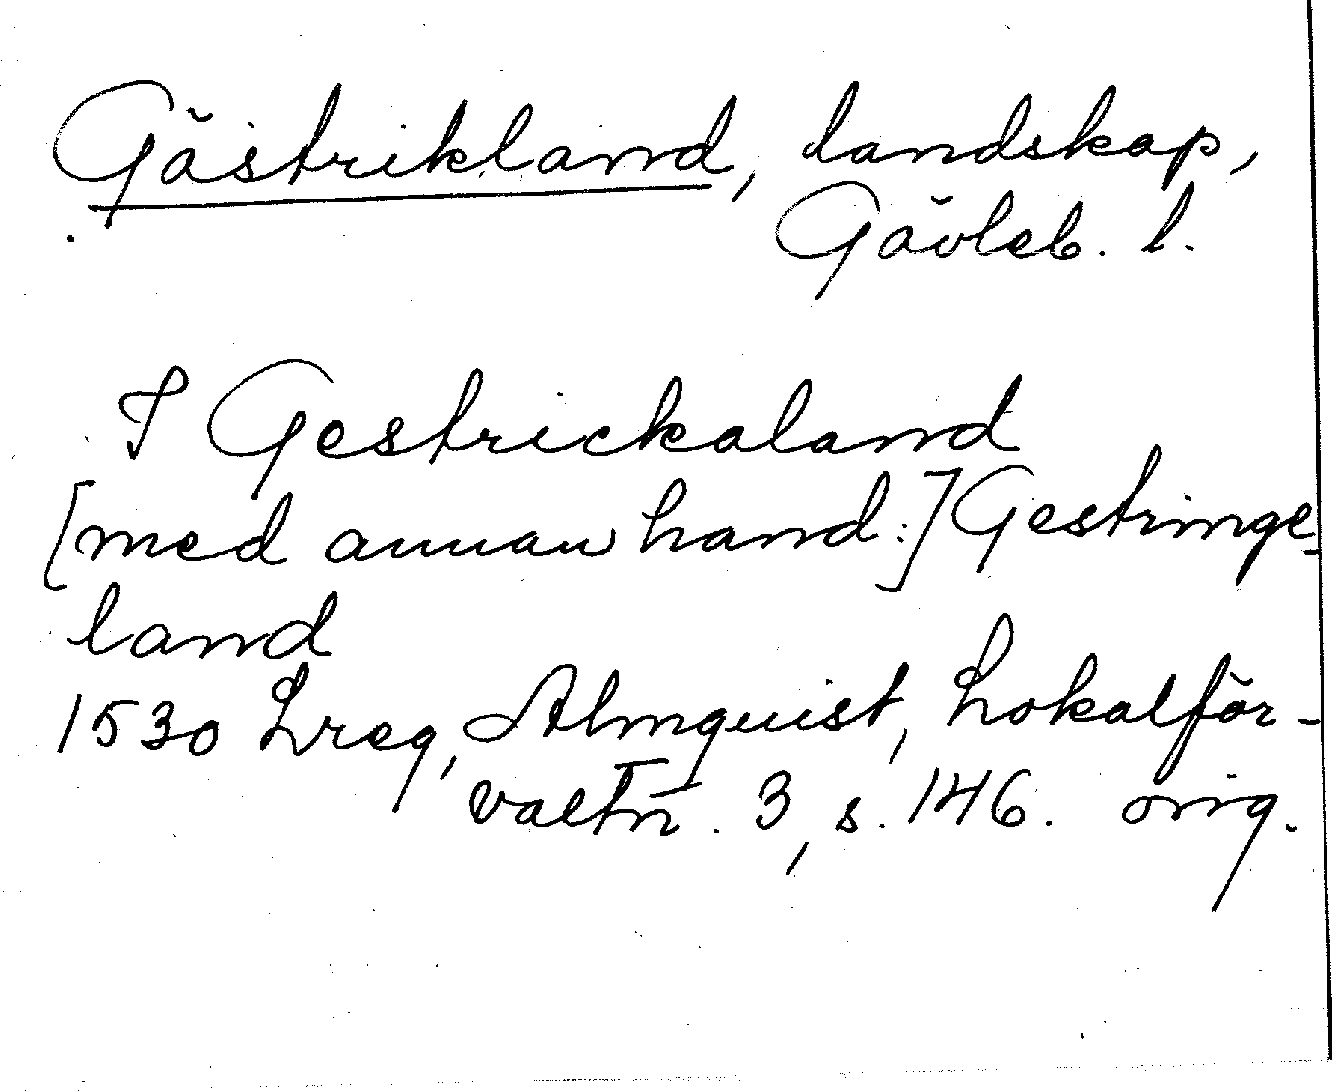 Gästrikland, landskap,
Gävleb. l.
I Gestrickaland
[med annan hand:] Gestringe-
land
1530 Lreg, Almquist, Lokalför-
valtn. 3, s. 146. orig.